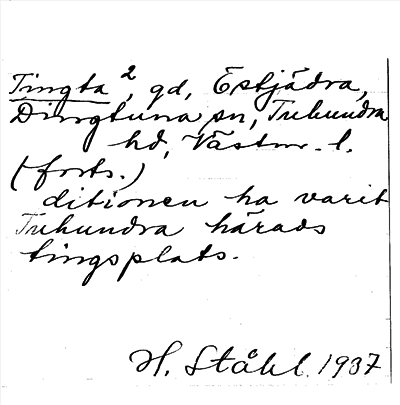 Tingta 2, gd, Estjädra,
Dingtuna sn, Tuhundra
hd, Västm. l.
(forts.)
ditionen ha varit
Tuhundra härads
tingsplats.
H. Ståhl. 1937